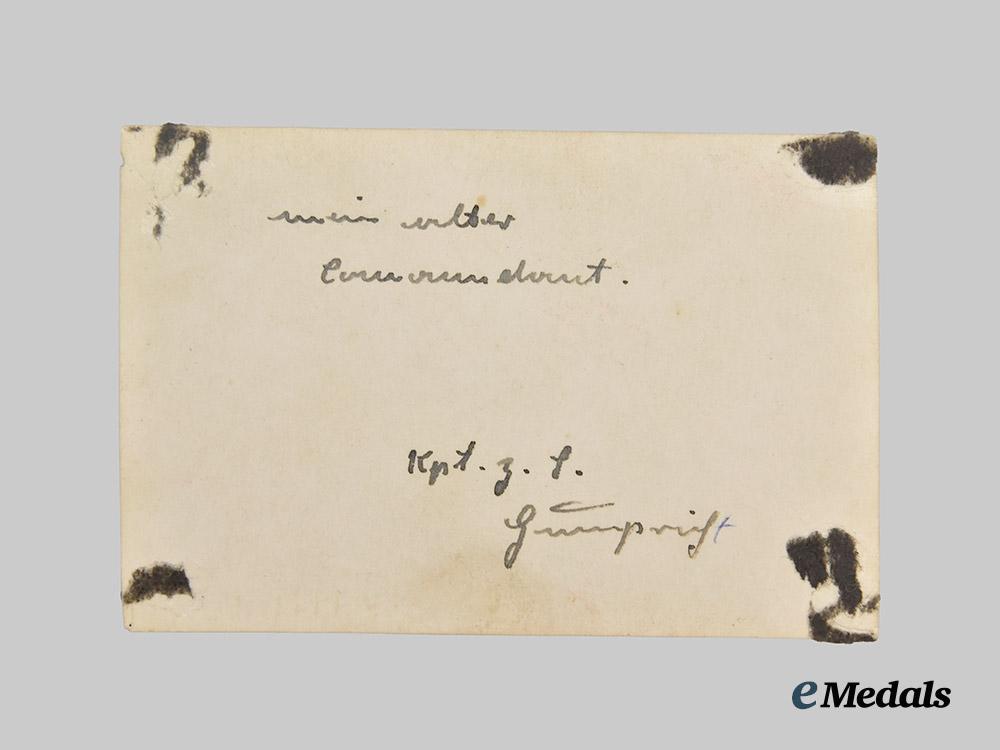 mein alter
Comandant.
Kpt. z. S.
Gumpricht
eMedals